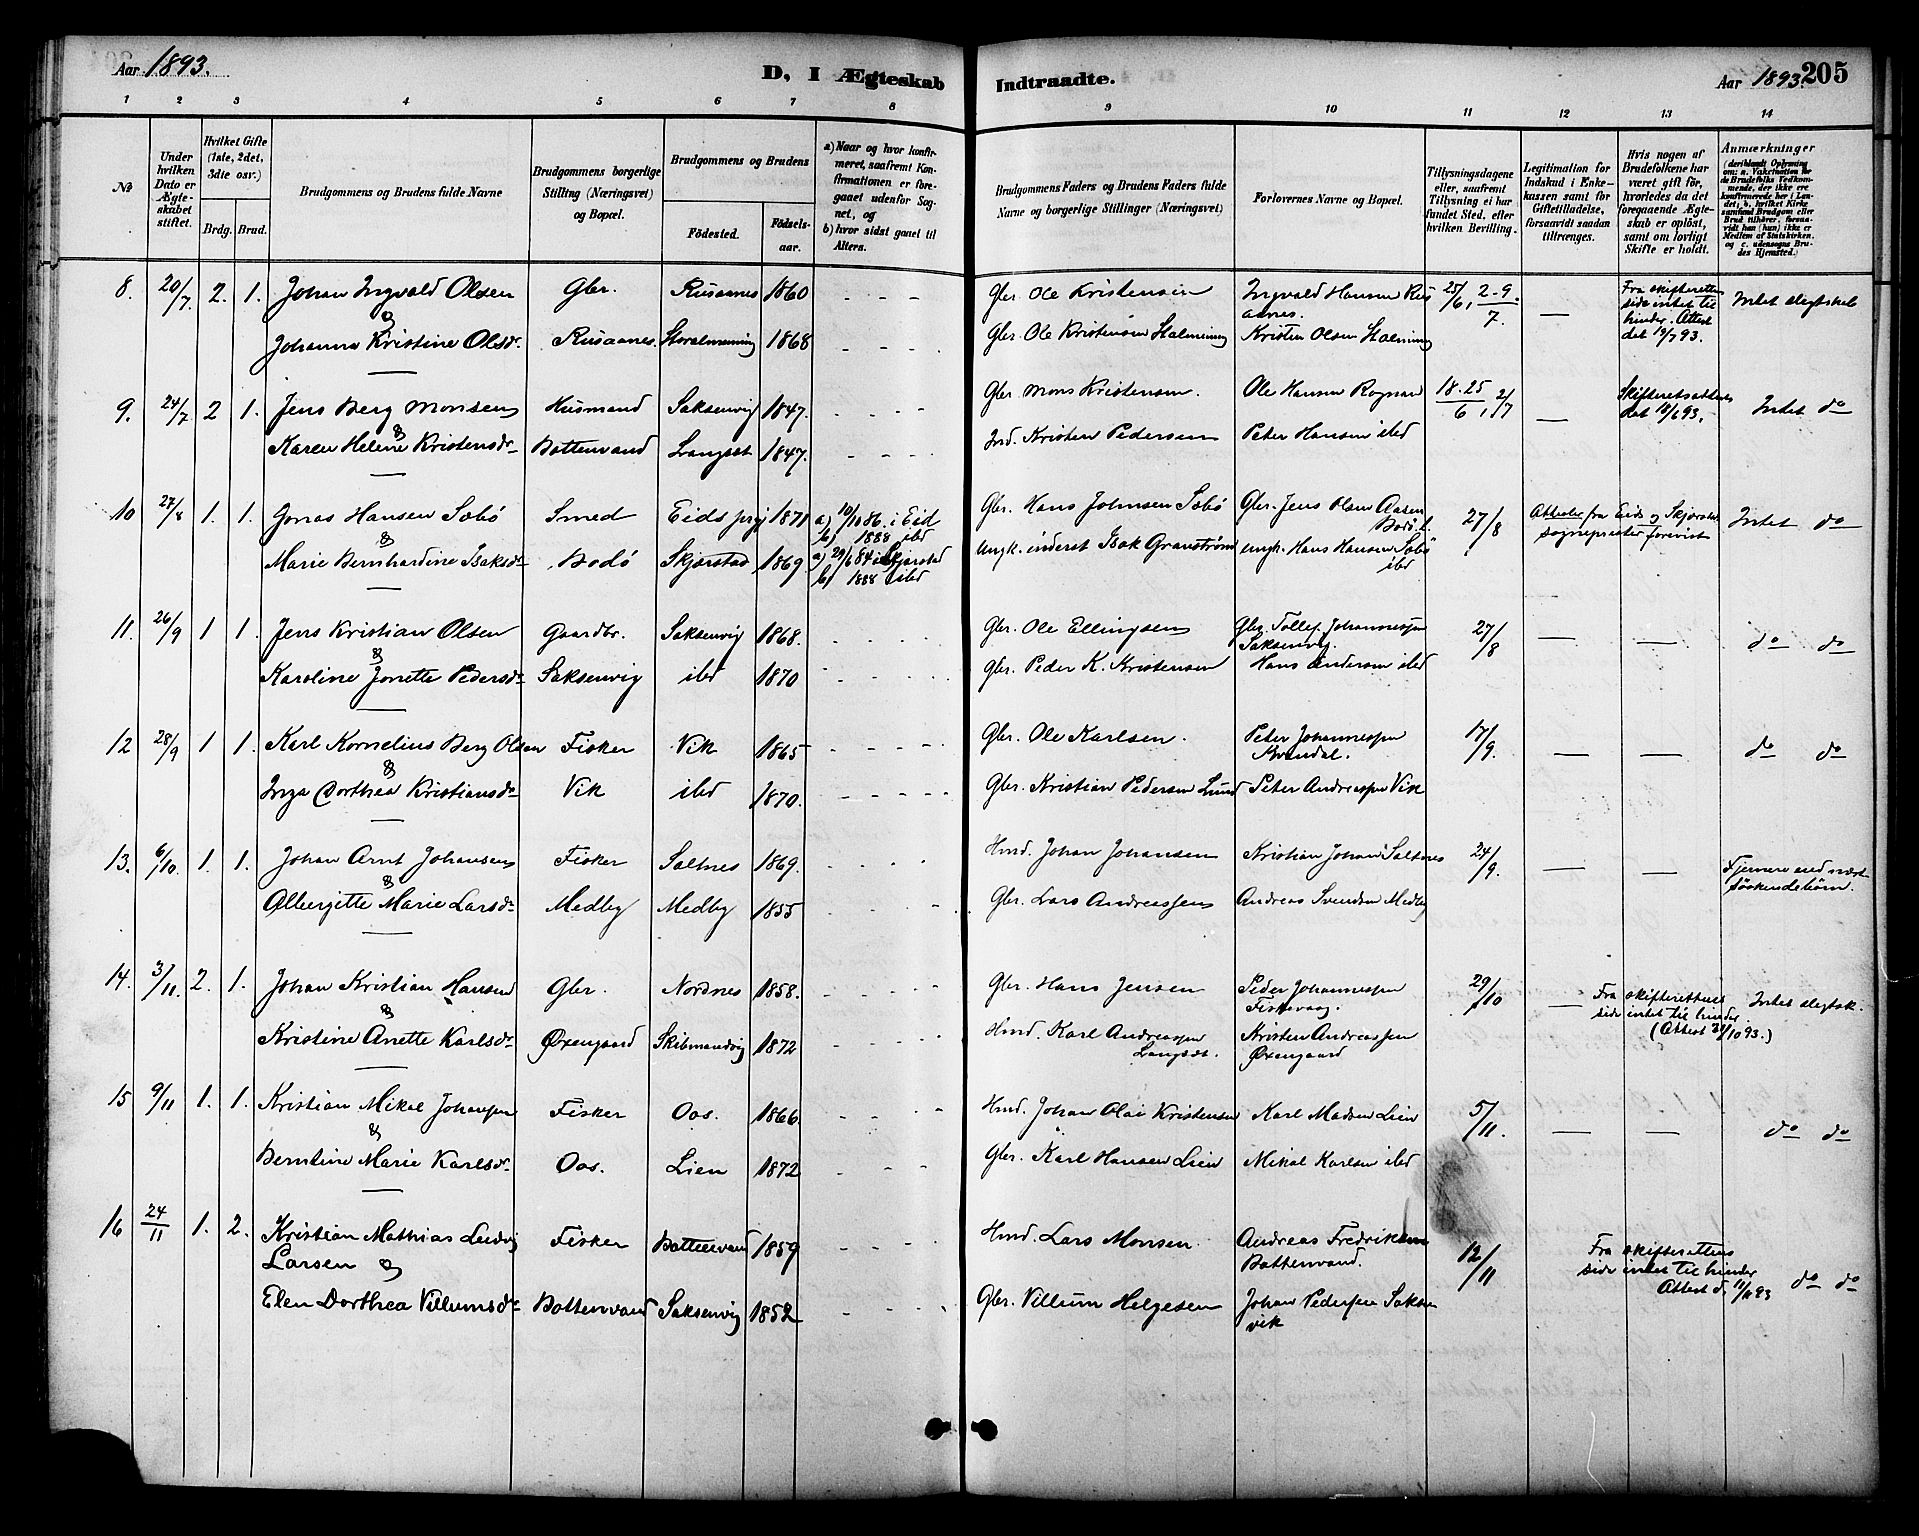 Aar 1893.
D, I Ægteskab Indtraadte.
Aar 1893. 205
1 2 3 4 5 6 7 8 9 10 11 12 13 14
No
Under hvilken Dato er Ægteskabet stiftet.
Hvilket Gifte (1ste, 2det, 3die osv.)
Brdg. Brud.
Brudgommens og Brudens fulde Navne
Brudgommens borgerlige Stilling (Næringsvei) og Bopæl.
Brudgommens og Brudens
Födested. Födselsaar.
a) Naar og hvor konfirmeret, saafremt Konfirmationen er foregaaet udenfor Sognet, og
b) hvor sidst gaaet til Alters.
Brudgommens Faders og Brudens Faders fulde Navne og borgerlige Stillinger (Næringsvei)
Forlovernes Navne og Bopæl.
Tillysningsdagene eller, saafremt Tillysning ei har fundet Sted, efter hvilken Bevilling.
Legitimation for Indskud i Enkekassen samt for Giftetilladelse, forsaavidt saadan tiltrænges.
Hvis nogen af Brudefolkene har været gift för, hvorledes da det foregaaende Ægteskab er oplöst, samt om lovligt Skifte er holdt.
Anmærkninger
8. 20/7. 2. 1. Johan Ingvald Olsen Gbr. Rusaanes 1860 - - - Gbr. Ole Kristensen Ingvald Hansen Rusaanes. 25/6, 2-9/7. — Fra skifterettens side intet til hinder. Attest det 19/7 93. Intet slegtskab
&
Johanna Kristine Olsdr. Rusaanes. Storalmening 1868 - - - - Gbr. Ole Kristensen Stalmening Kristen Olsen Stalmening
9. 24/7 2 1. Jens Berg Monsen Husmand Saksenvig 1847. - - - - Gbr Mons Kristensen. Ole Hansen Rognan 18. 25/6, 2/7 — Skifteretsattest det 18/6 93. Intet do
&
Karen Helene Kristensdr Bottenvand Langset 1847. - - - - Ind. Kristen Pedersen Peter Hansen ibd
10 27/8 1. 1. Jonas Hansen Sobö Smed Eids prgj 1871 a) 10/10 86. i Eid b) 1888 ibd Gbr. Hans Johnsen Sobö Gbr. Jens Olsen Aasen Bodö l. 27/8 Attester fra Eids og Skjerstad sogneprester forevist Intet do
&
Marie Bernhardine Isaksdr Bodö Skjerstad 1869. a) 29/6 84 i Skjerstad b) 1888 ibd Ungk. inderst Isak Granström ungk. Hans Hansen Sobö ibd
11. 26/9 1 1. Jens Kristian Olsen Gaardbr. Saksenvig 1868. - - - - Gbr. Ole Ellingsen Gbr. Tollef Johannessen Saksenvig. 27/8 — — do do
&
Karoline Jonette Pedersdr Saksenvig ibd 1870 - - - - Gbr. Peder K. Kristensen Hans Andersen ibd
12 28/9 1 1. Karl Kornelius Berg Olsen Fisker Vik 1865 - - - - Gbr. Ole Karlsen. Peter Johannessen 17/9. — — do do
&
Inga Dorthea Kristiansdr Vik ibd 1870. - - - - - Gbr. Kristian Pedersen Lund Peter Andreassen Vik
13. 6/10. 1. 1. Johan Arnt Johansen Fisker Saltnes 1869. - - - - Hmd. Johan Johansen Kristian Johans. Saltnes 24/9. — — Fjernere end næstsöskendebörn.
&
Albergitte Marie Larsdr Medby Medby 1855 - - - Gbr. Lars Andreassen Andreas Svendsen Medby
14. 3/11. 2. 1. Johan Kristian Hansen Gbr. Nordnes 1858. - - - - Gbr. Hans Jensen Peder Johannessen Fiskevaag. 29/10 — Fra skifterettens side intet til hinder. (Attest 21/10 93.) Intet slegtsk.
&
Kristine Anette Karlsdr. Øxengaard Skibmandvig 1872 - - - - Hmd. Karl Andreassen Langset. Kristen Andreassen Øxengaard
15 9/11 1. 1. Kristian Mikal Johansen Fisker Oos. 1866. - - - - Hmd. Johan Olai Kristensen Karl Madsen Lien 5/11. — — do do
&
Berntine Marie Karlsdr. Oos. Lien 1872 - - - Gbr. Karl Hansen Lien Mikal Karlsen ibd
16 24/11 1. 2. Kristian Mathias Ludvig Larsen & Fisker Bottenvand 1859 - - - - Hmd. Lars Monsen. Andreas Fredriksen Bottenvand. 12/11 Fra skifterettens side intet til hinder Attest d. 11/11 93 do do
Elen Dorthea Villumsdr Bottenvand Saksenvig 1852 - - - - Gbr. Villum Helgesen Johan Pedersen Saksenvik